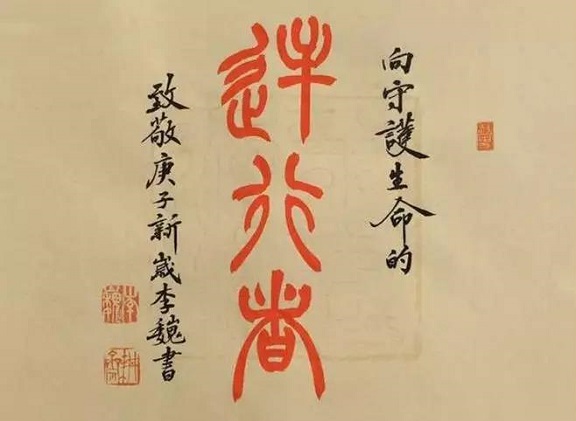 向守護生命的
逆行者
致敬庚子新歲李魏書